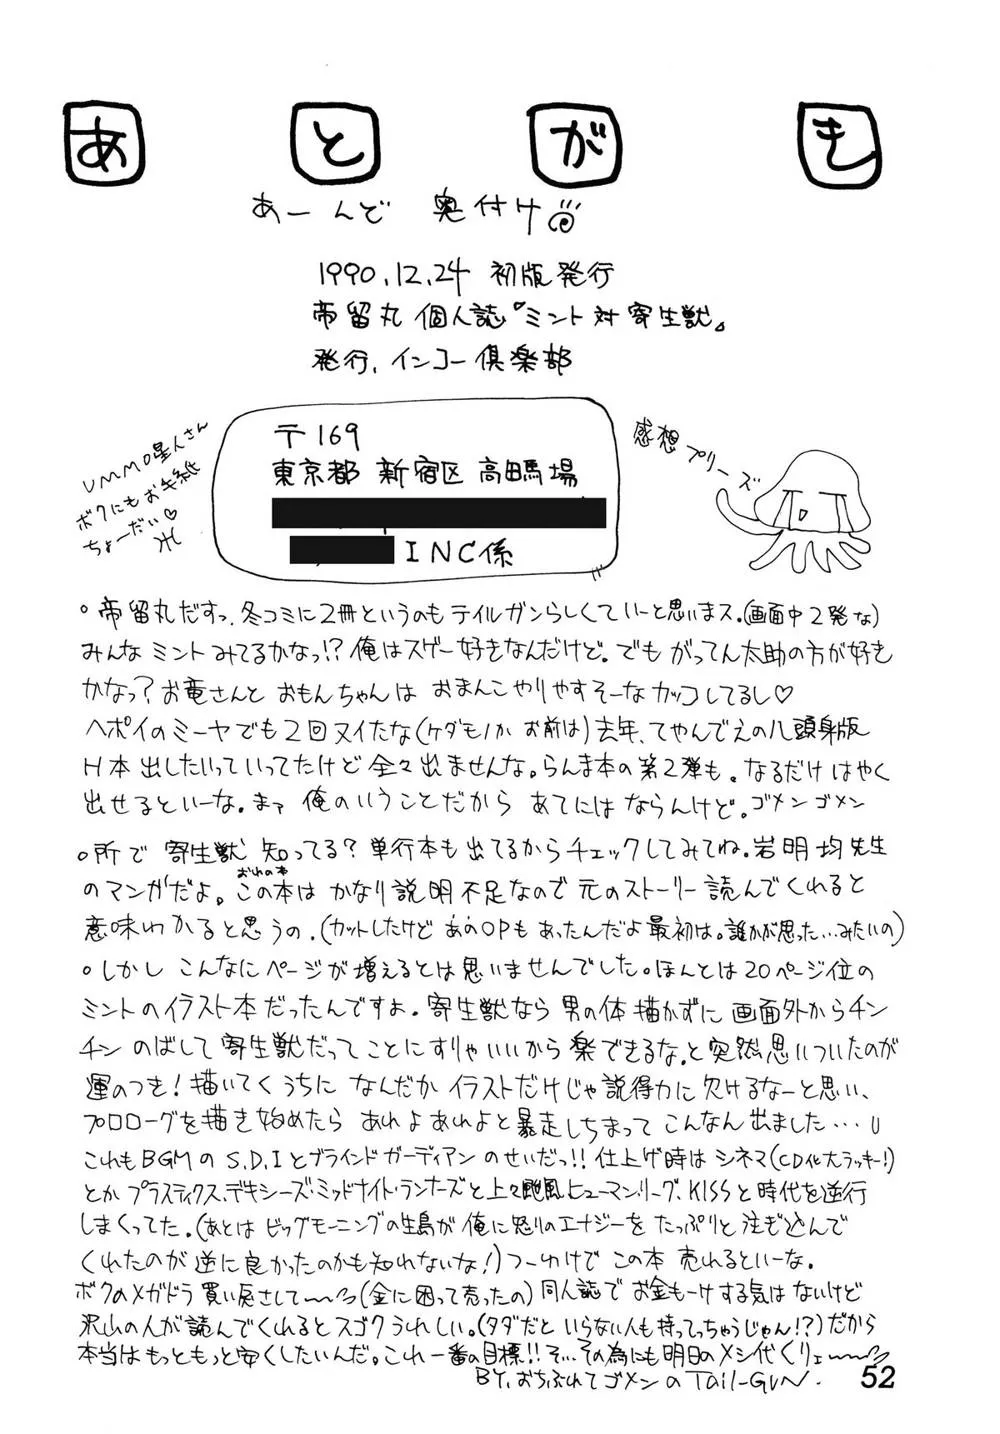 あとがき
あーんど 奥付け
1990.12.24 初版発行
帝留丸 個人誌『ミント対寄生獣』
発行、インコー倶楽部
〒169
東京都 新宿区 高田馬場
INC係
UMMO星人さん
ボクにもお手紙
ちょーだい♡
感想プリーズ
○帝留丸だすっ、冬コミに2冊というのも テイルガンらしくていーと思いまス。(画面中2発な)
みんな ミント みてるかなっ!? 俺はスゲー好きなんだけど。でも がってん太助の方が好き
かなっ? お竜さんと おもんちゃんは おまんこやりやすそーなカッコしてるし♡
ヘポイのミーヤでも2回ヌイたな(ケダモノか お前は)去年、てやんでえの八頭身版
H本 出したいっていってたけど 全々出ませんな。らんま本の第2弾も。なるだけはやく
出せるといーな。まァ 俺のいうことだから あてにはならんけど。ゴメンゴメン
○所で 寄生獣 知ってる? 単行本も出てるからチェックしてみてね。岩明均先生
のマンガだよ。この本は かなり説明不足なので 元のストーリー読んでくれると
おれの本
意味わかると思うの.(カットしたけど あのOPもあったんだよ最初は。誰かが思った…みたいの)
○しかし こんなにページが増えるとは思いませんでした。ほんとは20ページ位の
ミントのイラスト本だったんですよ。寄生獣なら 男の体描かずに 画面外からチン
チン のばして 寄生獣だってことにすりゃいいから 楽できるな。と突然思いついたのが
運のつき! 描いてくうちに なんだか イラストだけじゃ説得力に欠けるなーと思い、
プロローグを描き始めたら あれよあれよと暴走しちまって こんなん出ました…
これもBGMの S.D.Iとブラインドガーディアン のせいだっ!! 仕上げ時は シネマ(CD化大ラッキー!)
とか プラスティクス、デキシーズ・ミッドナイト・ランナーズと上々颱風、ヒューマン・リーグ、KISSと時代を逆行
しまくってた。(あとは ビッグモーニングの生島が 俺に怒りのエナジーを たっぷりと注ぎ込んで
くれたのが 逆に良かったのかも知れないな!)つーわけで この本 売れるといーな。
ボクのメガドラ 買い戻さして〜(金に困って売ったの)同人誌で お金もーけする気は ないけど
沢山の人が読んでくれるとスゴクうれしい。(タダだと いらない人も持ってっちゃうじゃん!?)だから
本当はもっともっと安くしたいんだ。これ一番の目標!! そ…その為にも明日のメシ代くりェ〜
BY.おちぶれてゴメンのTail-GuN.
52